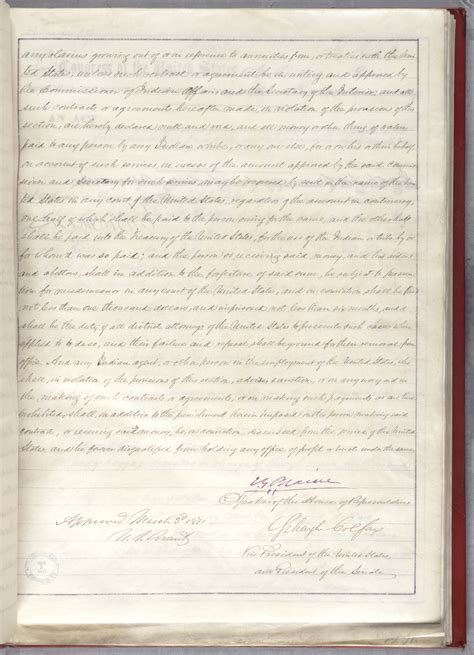 any claims growing out of or in reference to annuities from, or treaties with, the Uni-
ted States, unless such contract or agreement be in writing and approved by
the Commissioner of Indian Affairs and the Secretary of the Interior, and all
such contracts or agreements hereafter made, in violation of the provisions of this
section, are hereby declared null and void, and all money or other thing of value
paid to any person by any Indian or tribe, or any one else, for or on his or their behalf,
on account of such services, in excess of the amount approved by the said commis-
sioner and Secretary for such services, may be recovered by suit in the name of the Uni-
ted States in any court of the United States, regardless of the amount in controversy,
one half of which shall be paid to the person suing for the same, and the other half
shall be paid into the Treasury of the United States, for the use of the Indian or tribe by or
for whom it was so paid; and the person so receiving said money, and his aiders
and abettors, shall in addition to the forfeiture of said sum, be subject to prosecu-
tion for misdemeanor in any court of the United States, and on conviction shall be fined
not less than one thousand dollars, and imprisoned not less than six months, and
shall be the duty of all district attorneys of the United States to prosecute such cases when
applied to to do so, and their failure and refusal shall be ground for their removal from
office. And any Indian agent, or other person in the employment of the United States, who
shall, in violation of the provisions of this section, advise, sanction, or in any way aid in
the making of such contracts or agreements, or in making such payments as are here
prohibited, shall, in addition to the punishment herein imposed on the person making said
contract, or receiving said money, be, on conviction, dismissed from the service of the United
States, and be forever disqualified from holding any office of profit or trust under the same.
J G Blaine
Speaker of the House of Representatives.
Approved March 3d 1871
Schuyler Colfax
U. S. Grant
Vice President of the United States,
and President of the Senate.